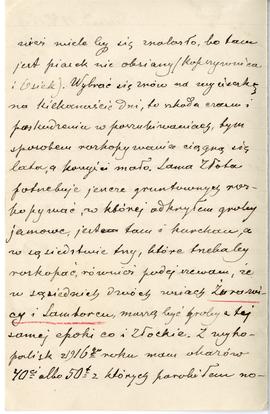 nieź wiele by się znalazło, bo tam
jest piasek nie obsiany (Koprzywnica
i Osiek). Wybrać się znów na wycieczkę
na kilkanaście dni, to szkoda czasu i
w poszukiwaniach, tym
sposobem rozkopywania ciągną się
lata, a korzyści mało. Sama Złota
potrzebuje jeszcze gruntownych roz-
kopywań, w której odkryłem groby
jamowe, jest tam i kurchan, a
w sąsiedztwie trzy, które trzebaby
rozkopać, również podejrzewam, że
w sąsiednich dwóch wsiach Żurawi-
cy i Samborcu, muszą być groby z tej
samej epoki co i Złockie. Z wyko-
polisk z 1916 roku mam okazów
40 albo 50 z których porobiłem no-